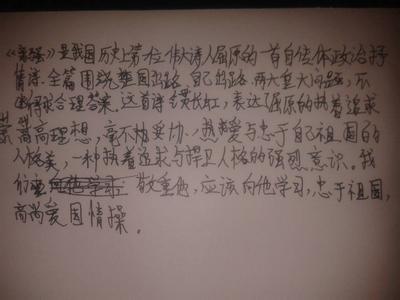 《离骚》是我国历史上第一位伟大诗人屈原的一首自传体政治抒
情诗。全篇围绕楚国出路、自己出路两大重大问题,不
得求合理答案。这首诗气贯长虹,表达了屈原的执着追求
崇高理想,毫不构妥协,热爱与忠于自己祖国的
人格美,一种执着追求与捍卫人格的强烈意识。我
们要敬重他,应该向他学习,忠于祖国,
高尚爱国情操。